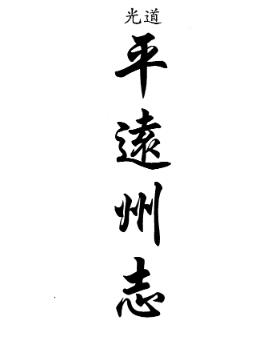 光道
平遠州志